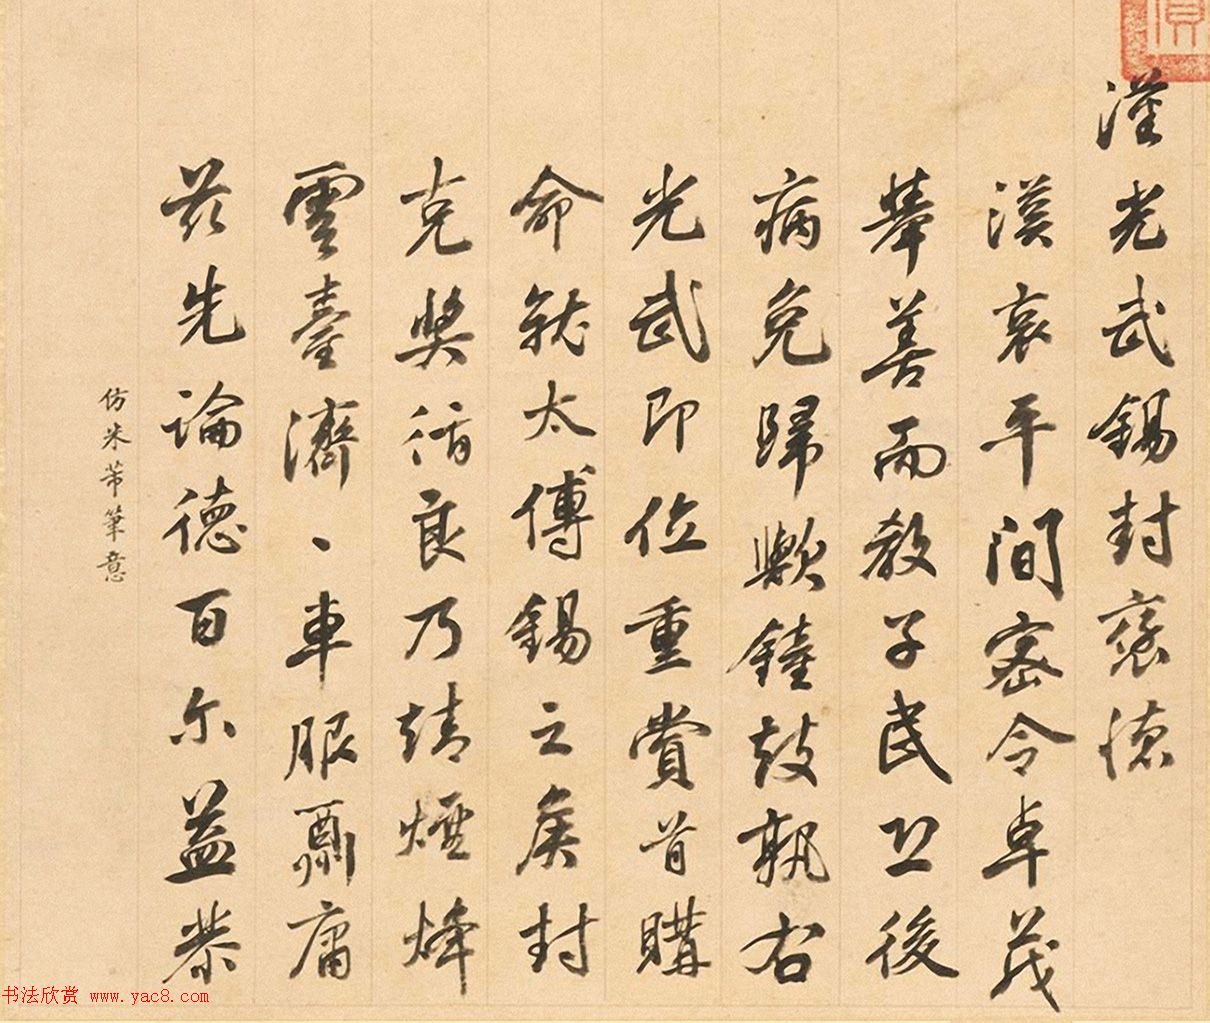 漢光武錫封褒德
漢哀平間密令卓茂
舉善而教子民後
病免歸歟鐘鼓孰右
光武即位重賞首購
命就太傅錫之侯封
克獎循良乃靖煙烽
雲臺濟、車服酬庸
茲先論德百尔益恭
仿米芾筆意
书法欣赏 www.yac8.com